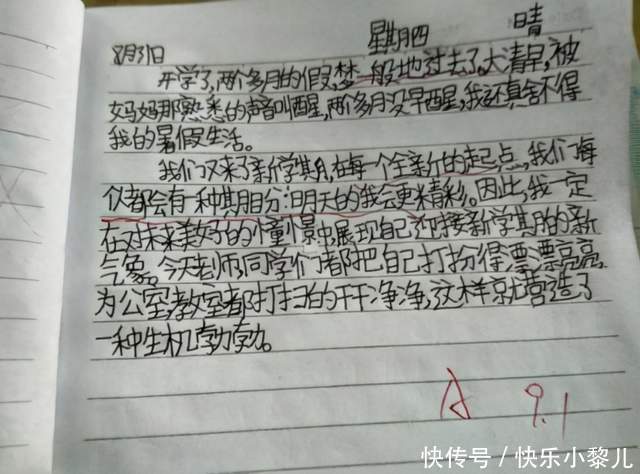 8月31日 星期四 晴
开学了，两个多月的假，梦一般地过去了。大清早，被
妈妈那熟悉的声音叫醒，两个多月没早醒，我还真舍不得
我的暑假生活。
我们又来了新学期，在每一个全新的起点，我们每
似都会有一种期盼：明天的我会更精彩。因此，我一定
在对未来美好的憧憬中，展现自己迎接新学期的新
气象。今天老师、同学们都把自己打扮得漂漂亮亮，
为公室、教室都打扫的干干净净，这样就营造了
一种生机勃勃。
A 9.1
快传号／快乐小黎儿